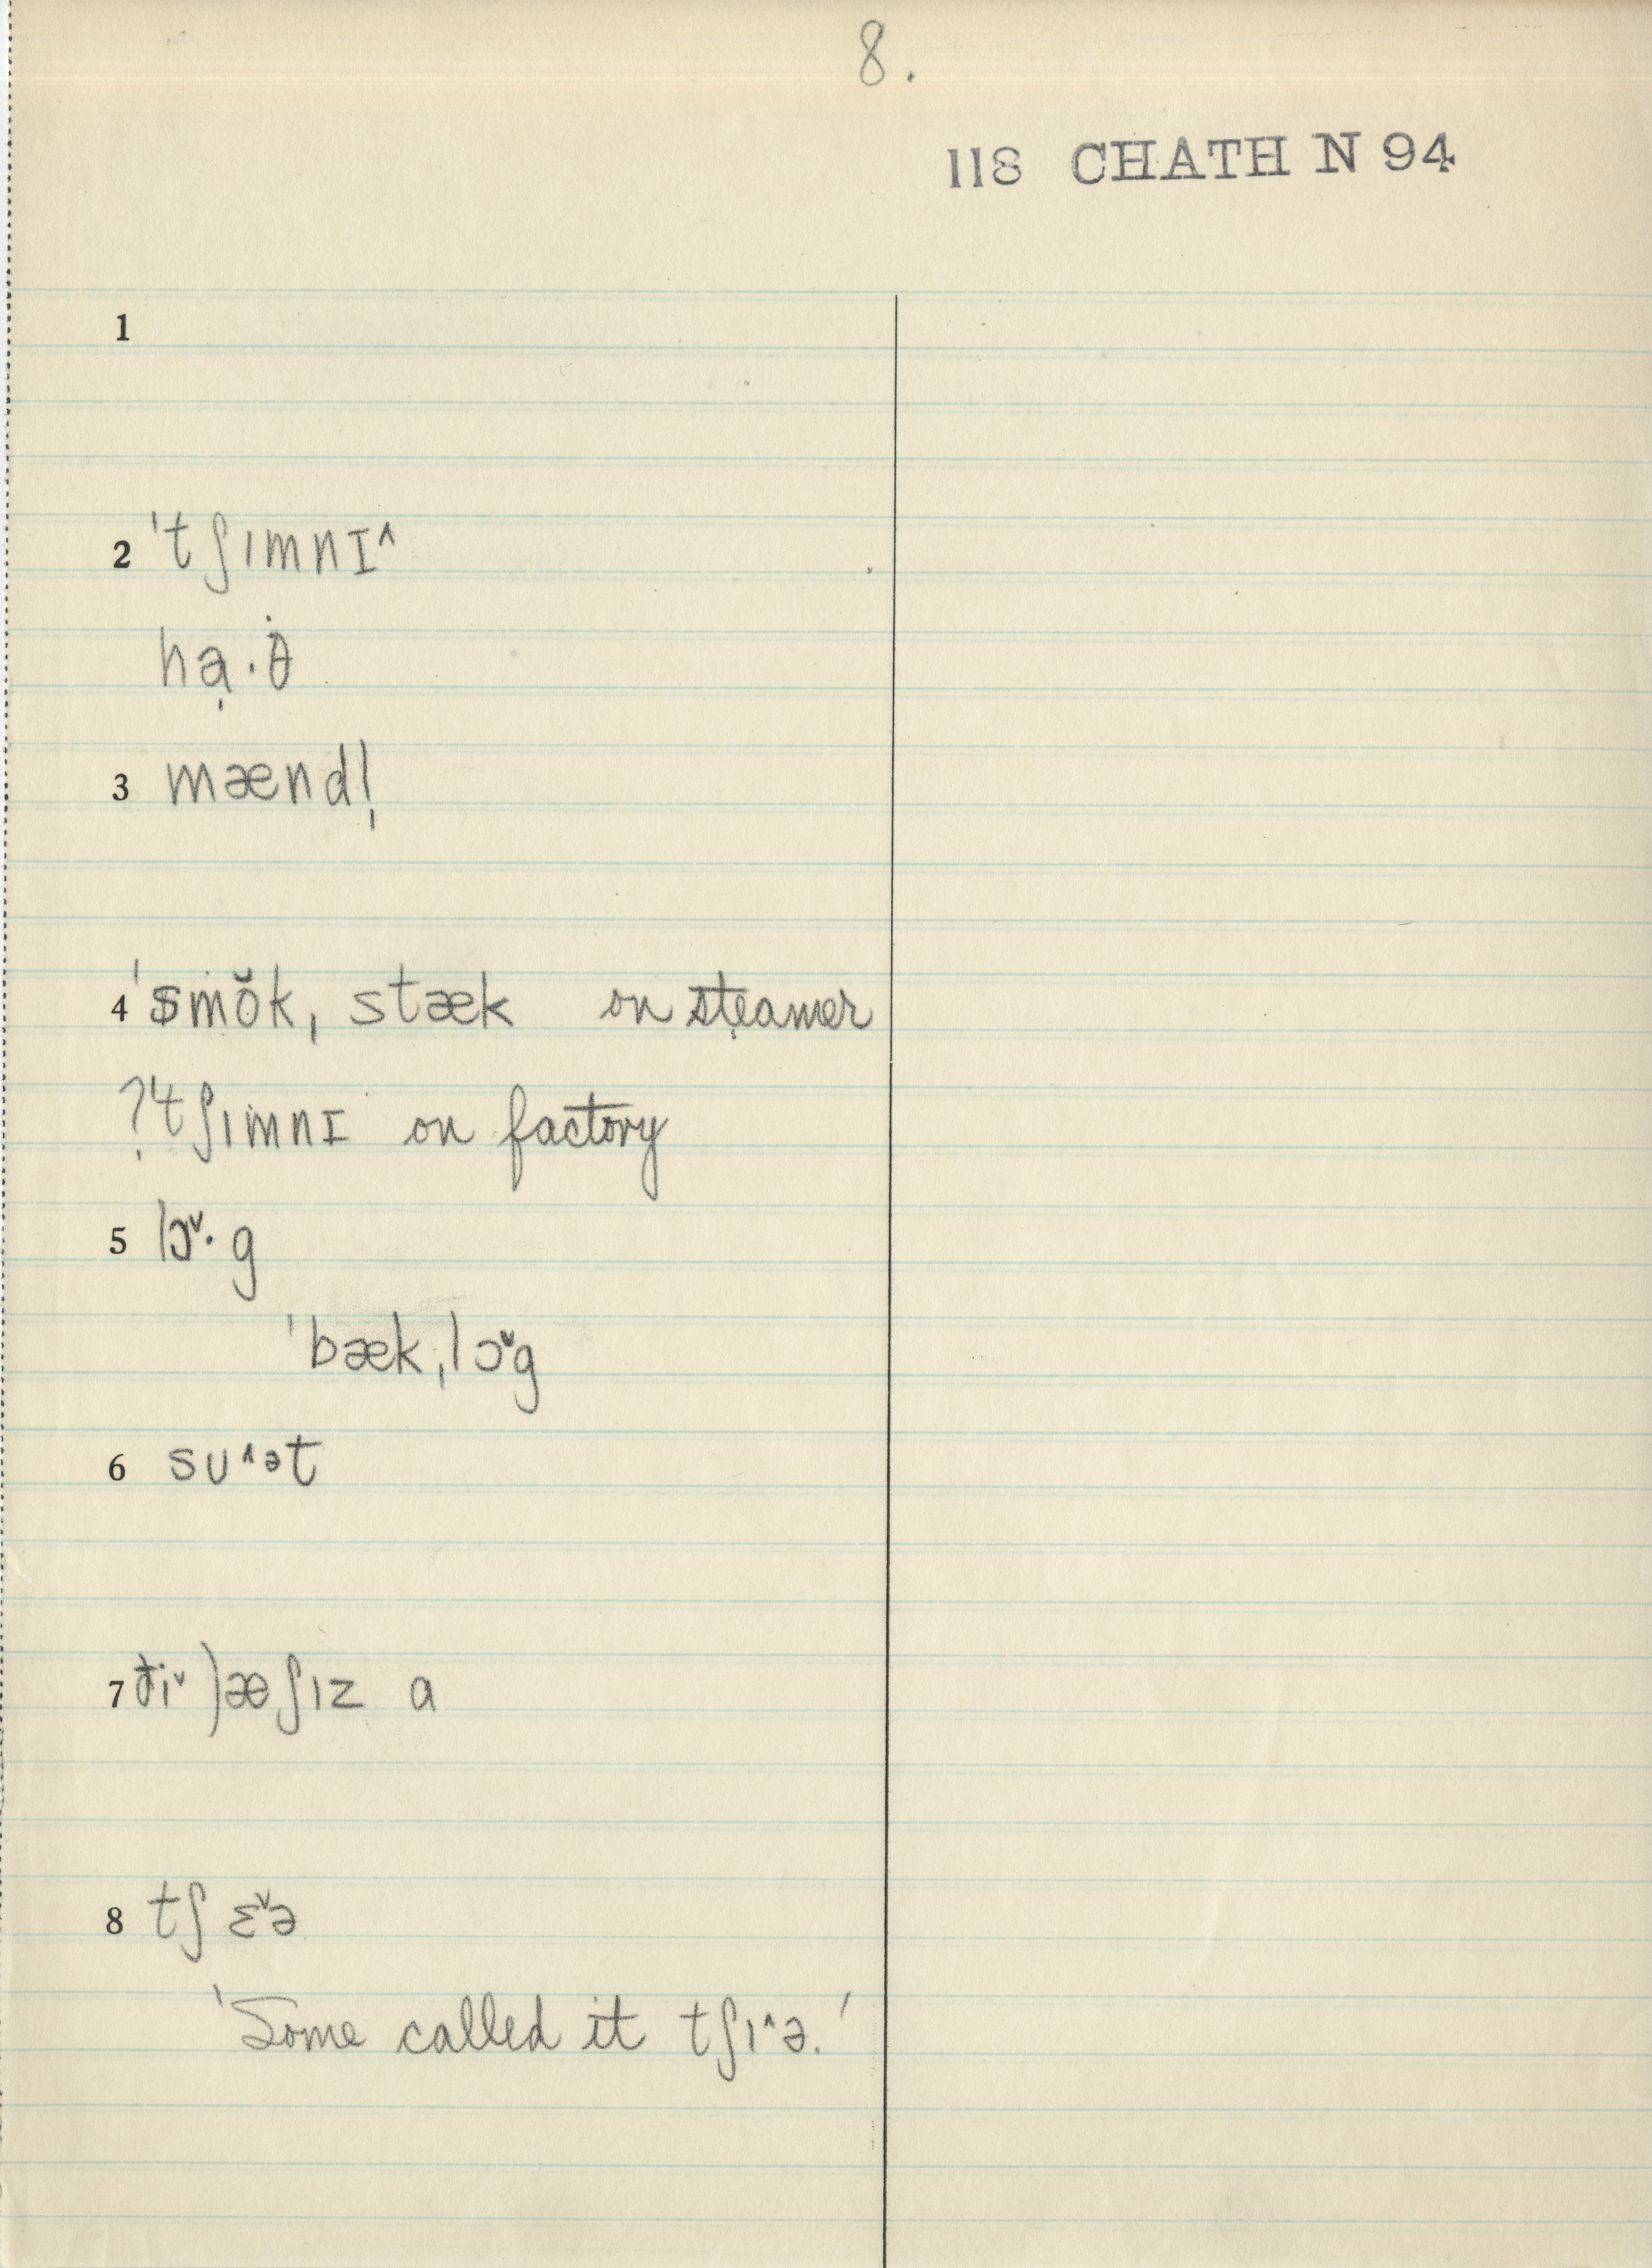 8.
118 CHATH N 94
1
2 ˈtʃɪmnɪ^
ha̩·θ̇
3 mændl̩
4 ˈsmŏkˌstæk on steamer
?ˈtʃɪmnɪ on factory
5 lɔˇ·g
ˈbækˌlɔˇg
6 sʊ^ət
7 ðiˇ)æʃɪz a
8 tʃɛˇə
'Some called it tʃɪ^ə.'